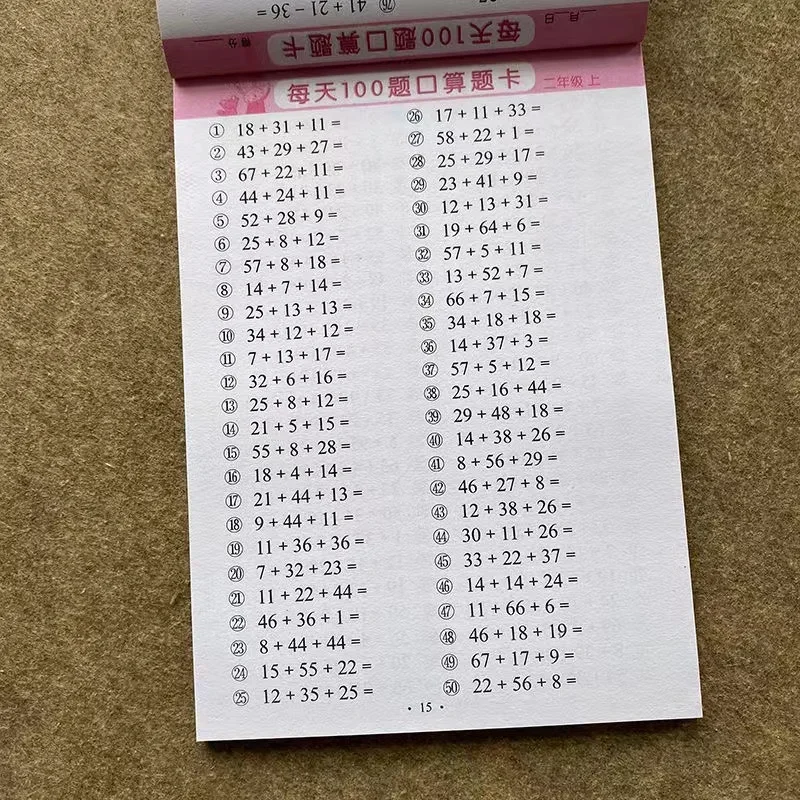 ㊆ 41 + 21 − 36 =
每天100题口算题卡
月 日 得分
每天100题口算题卡 二年级 上
① 18 + 31 + 11 =
② 43 + 29 + 27 =
③ 67 + 22 + 11 =
④ 44 + 24 + 11 =
⑤ 52 + 28 + 9 =
⑥ 25 + 8 + 12 =
⑦ 57 + 8 + 18 =
⑧ 14 + 7 + 14 =
⑨ 25 + 13 + 13 =
⑩ 34 + 12 + 12 =
⑪ 7 + 13 + 17 =
⑫ 32 + 6 + 16 =
⑬ 25 + 8 + 12 =
⑭ 21 + 5 + 15 =
⑮ 55 + 8 + 28 =
⑯ 18 + 4 + 14 =
⑰ 21 + 44 + 13 =
⑱ 9 + 44 + 11 =
⑲ 11 + 36 + 36 =
⑳ 7 + 32 + 23 =
㉑ 11 + 22 + 44 =
㉒ 46 + 36 + 1 =
㉓ 8 + 44 + 44 =
㉔ 15 + 55 + 22 =
㉕ 12 + 35 + 25 =
㉖ 17 + 11 + 33 =
㉗ 58 + 22 + 1 =
㉘ 25 + 29 + 17 =
㉙ 23 + 41 + 9 =
㉚ 12 + 13 + 31 =
㉛ 19 + 64 + 6 =
㉜ 57 + 5 + 11 =
㉝ 13 + 52 + 7 =
㉞ 66 + 7 + 15 =
㉟ 34 + 18 + 18 =
㊱ 14 + 37 + 3 =
㊲ 57 + 5 + 12 =
㊳ 25 + 16 + 44 =
㊴ 29 + 48 + 18 =
㊵ 14 + 38 + 26 =
㊶ 8 + 56 + 29 =
㊷ 46 + 27 + 8 =
㊸ 12 + 38 + 26 =
㊹ 30 + 11 + 26 =
㊺ 33 + 22 + 37 =
㊻ 14 + 14 + 24 =
㊼ 11 + 66 + 6 =
㊽ 46 + 18 + 19 =
㊾ 67 + 17 + 9 =
㊿ 22 + 56 + 8 =
· 15 ·